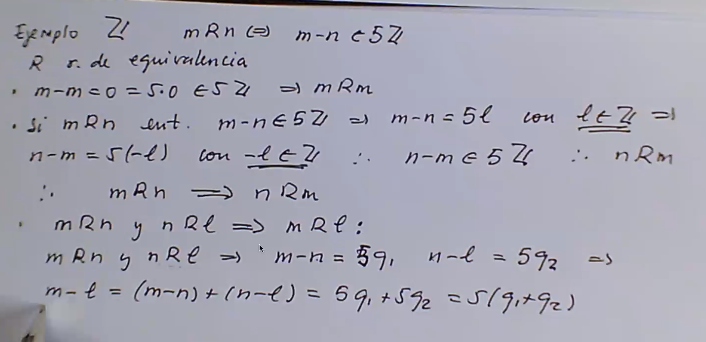 Ejemplo ℤ mRn ⇔ m-n ∈ 5ℤ
R r. de equivalencia
• m-m=0=5·0 ∈ 5ℤ ⇒ mRm
• Si mRn ent. m-n ∈ 5ℤ ⇒ m-n = 5ℓ con ℓ∈ℤ ⇒
n-m = 5(-ℓ) con -ℓ∈ℤ ∴ n-m ∈ 5ℤ ∴ nRm
∴ mRn ⟹ nRm
• mRn y nRℓ ⟹ mRℓ:
mRn y nRℓ ⇒ m-n = 5q₁ n-ℓ = 5q₂ ⇒
m-ℓ = (m-n)+(n-ℓ) = 5q₁+5q₂ = 5(q₁+q₂)